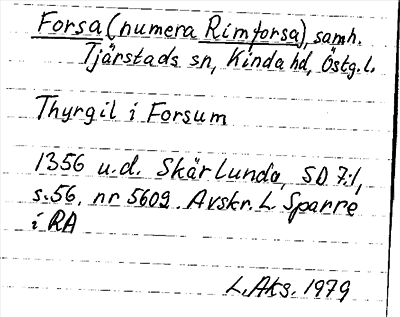 Forsa (numera Rimforsa), samh.
Tjärstads sn, Kinda hd, Östg. l.
Thyrgil i Forsum
1356 u.d. Skärlunda, SD 7:1,
s. 56, nr 5609. Avskr. L. Sparre
i RA
L. Aks. 1979